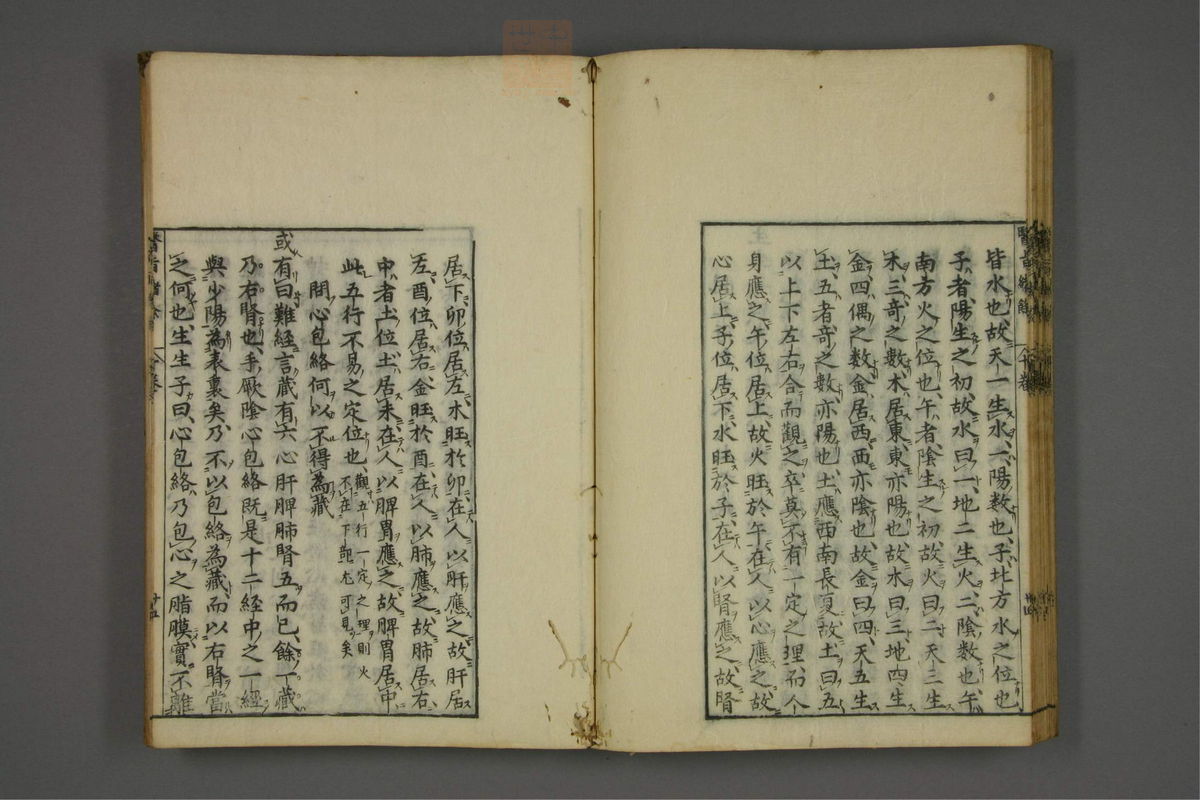 皆水也、故天一生水、一陽数也、子北方水之位也
子者、陽生之初、故水曰一、地二生火、二陰数也、午
南方火之位也、午者、陰生之初、故火曰二、天三生
木、三奇之数、木居東、東亦陽也、故木曰三、地四生
金、四偶之数、金居西、西亦陰也、故金曰四、天五生
土、五者奇之数、亦陽也、土應西南長夏、故土曰五
以上下左右合而觀之、卒莫不有一定之理、而人
身應之、午位居上、故火旺於午、在人以心應之、故
心居上、子位居下、水旺於子、在人以腎應之、故腎
居下、卯位居左、木旺於卯、在人以肝應之、故肝居
左、酉位居右、金旺於酉、在人以肺應之、故肺居右
中者土位、土居未、在人以脾胃應之、故脾胃居中
此五行不易之定位也、觀五行一定之理則火
不在下部尤可見矣
問心包絡何以不得為藏
或有曰難經言藏有六、心肝脾肺腎五而已、餘一藏
乃右腎也、手厥陰心包絡既是十二經中之一經
與少陽為表裏矣、乃不以包絡為藏、而以右腎當
之何也、生生子曰、心包絡乃包心之脂膜、實不離